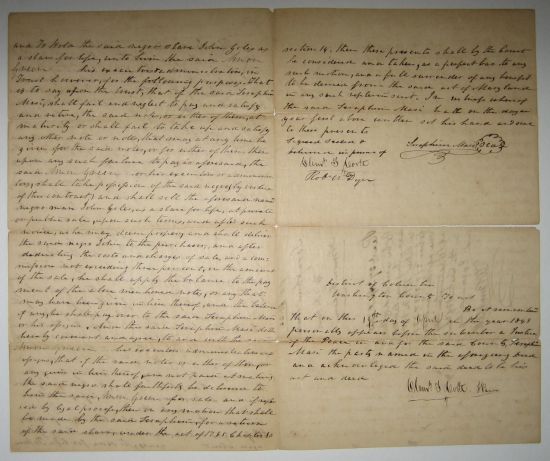 and To Hold the said negro slave John Giles as
a slave for life, unto him the said Ammon
Green his executors & administrators, in
Trust however, for the following purposes, that
is to say upon the trust, that if the said Seraphim
Masi, shall fail and neglect to pay and satisfy
and retire, the said note, or either of them, at
maturity or shall fail to take up and satisfy
any other note or notes, that may at any time be
given for the said notes, or for either of them then
upon any such failure to pay as aforesaid, the
said Ammon Green or his executor or administra
tors, shall take possession of the said negro (by virtue
of this contract) and shall sell the aforesaid named
negro man John Giles, as a slave for life, at private
or public sale, upon such terms, and after such
notice, as he may deem proper, and shall deliver
the said negro John to the purchaser, and after
deducting the costs and charges of sale, and a com-
mission not exceeding three per cent, on the amount
of the sale, he shall apply the balance to the pay
ment of the above mentioned notes, or any that
may have been given in lieu thereof, and the balance
if any, he shall pay over to the said Seraphim Masi
or his assigns, And the said Seraphim Masi doth
hereby covenant and agree, to and with the said
Ammon Green his executors administrators
assigns, that, if the said notes or either of them, or
any given in lieu thereof, are not paid at maturity
the said negro shall faithfully be delivered to
him the said, Ammon Green for sale and if replevied
by legal process, then in any motion that shall
be made by the said Seraphim, for a return
of the said slave, under the act of 1785 Chapter 80
section 14, then these presents shall by the Court
be considered and taken, as a perfect bar to any
such motion, and a full surrender of any benefit
to be derived from the said act of Maryland
in any such replevin suit. In witness whereof
the said Seraphim Masi hath on the day and
year first above written set his hand and seal
to these presents
Signed Sealed &
delivered in presence of
Seraphim Masi Seal
Clemt T Coote
Robt W Dyer
District of Columbia
Washington County To wit
Be it remembered
That on this day of in the year 1841
personally appears before the subscriber a Justice
of the Peace in and for the said County, Seraphim
Masi the party named in the aforegoing deed
and acknowledged the said deed to be his
act and deed
Clemt T Coote